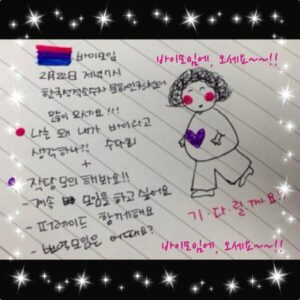 바이모임에, 오세요~~!!
바이모임
2月22日 저녁7시
한국성적소수자문화인권센터
많이 오세요!!!
나는 왜 내가 바이라고
생각하나?! 수다회
+
작당모의 해봐요!!
- 계속 모임을 하고 싶어요
- 퍼레이드 함께해요
모임은 어때요?
기·다·릴·게·요?
바이모임에, 오세요~~!!